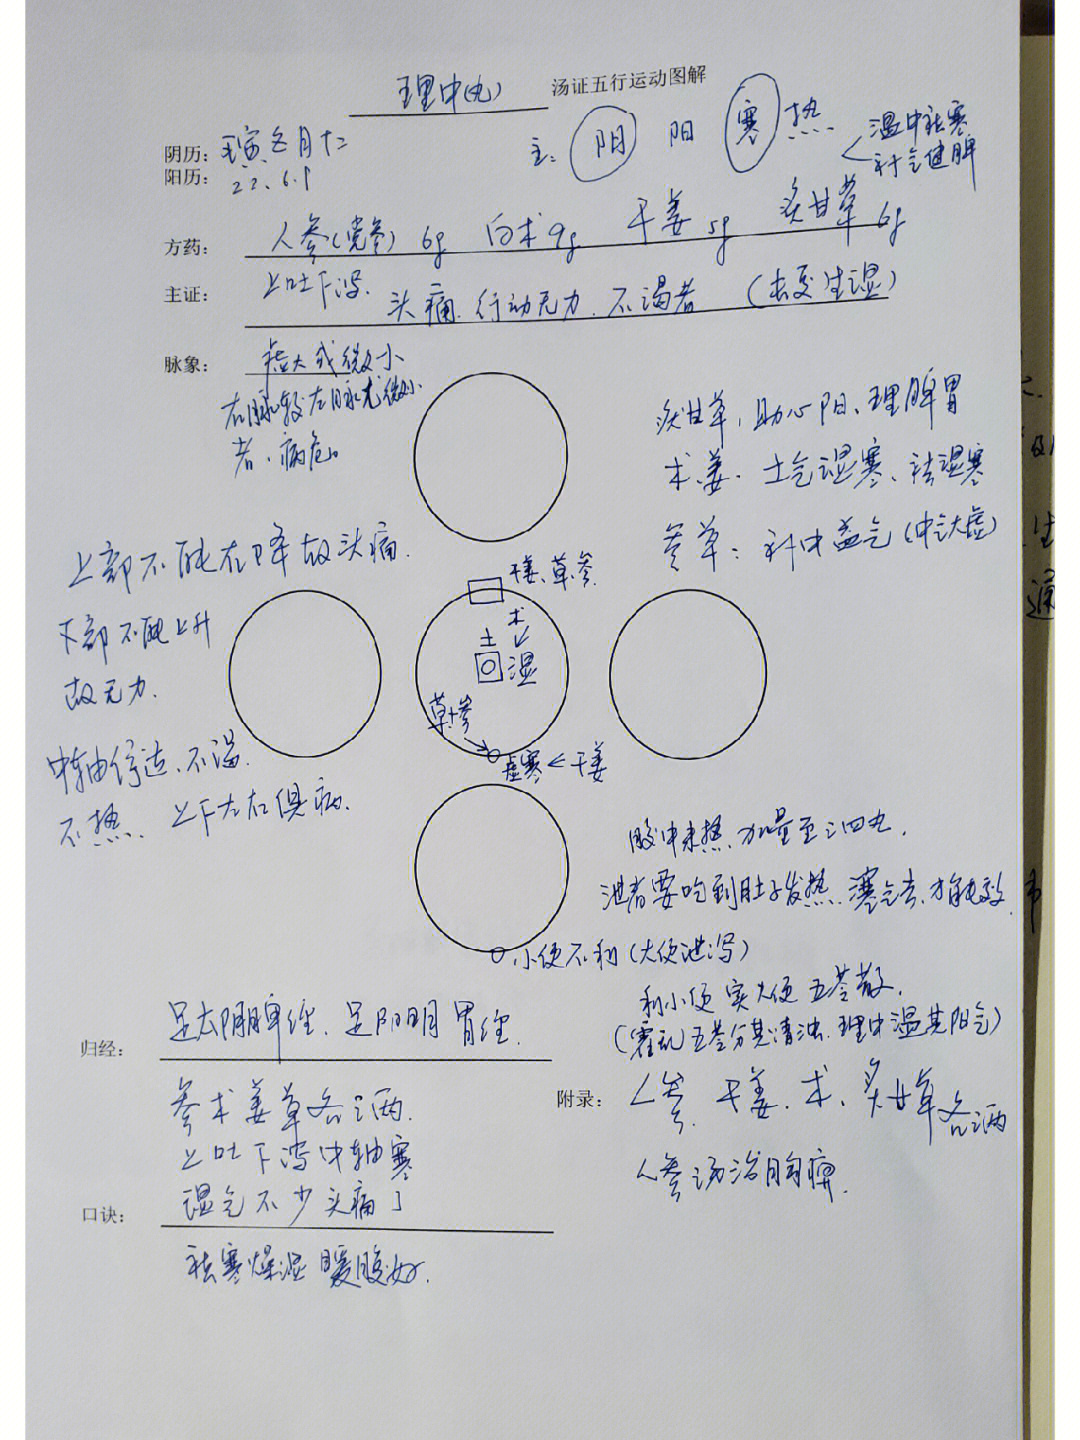 理中(丸) 汤证五行运动图解
阴历: 五月十二
阳历: 22.6.
主: 阴 阳 寒 热
温中祛寒
补气健脾
方药: 人参(党参) 6g 白术9g 干姜5g 炙甘草6g
主证: 上吐下泻. 头痛. 行动无力. 不渴者 (生湿)
脉象: 虚大或微小
右脉较左脉尤微小
者、病危。
炙甘草, 助心阳、理脾胃
术、姜. 土气湿寒、祛湿寒
参草: 补中益气(中气大虚)
上部不能右降故头痛.
下部不能上升
故无力.
中轴停运、不温
不热、上下左右俱病.
干姜、草、参.
术
土
湿
草+参
虚寒 < 干姜
腹中未热、加量至三四丸.
泄者要吃到肚子发热、寒气去、才能
小便不利(大便泄泻)
利小便 实大便 五苓散.
(霍乱 五苓分其清浊. 理中温其阳气)
归经: 足太阴脾经、足阳明胃经.
附录: 人参、干姜、术、炙甘草各三两
人参汤治胸痹.
参术姜草各三两.
上吐下泻中轴寒
口诀: 湿气不少头痛了
祛寒燥湿暖腹好.